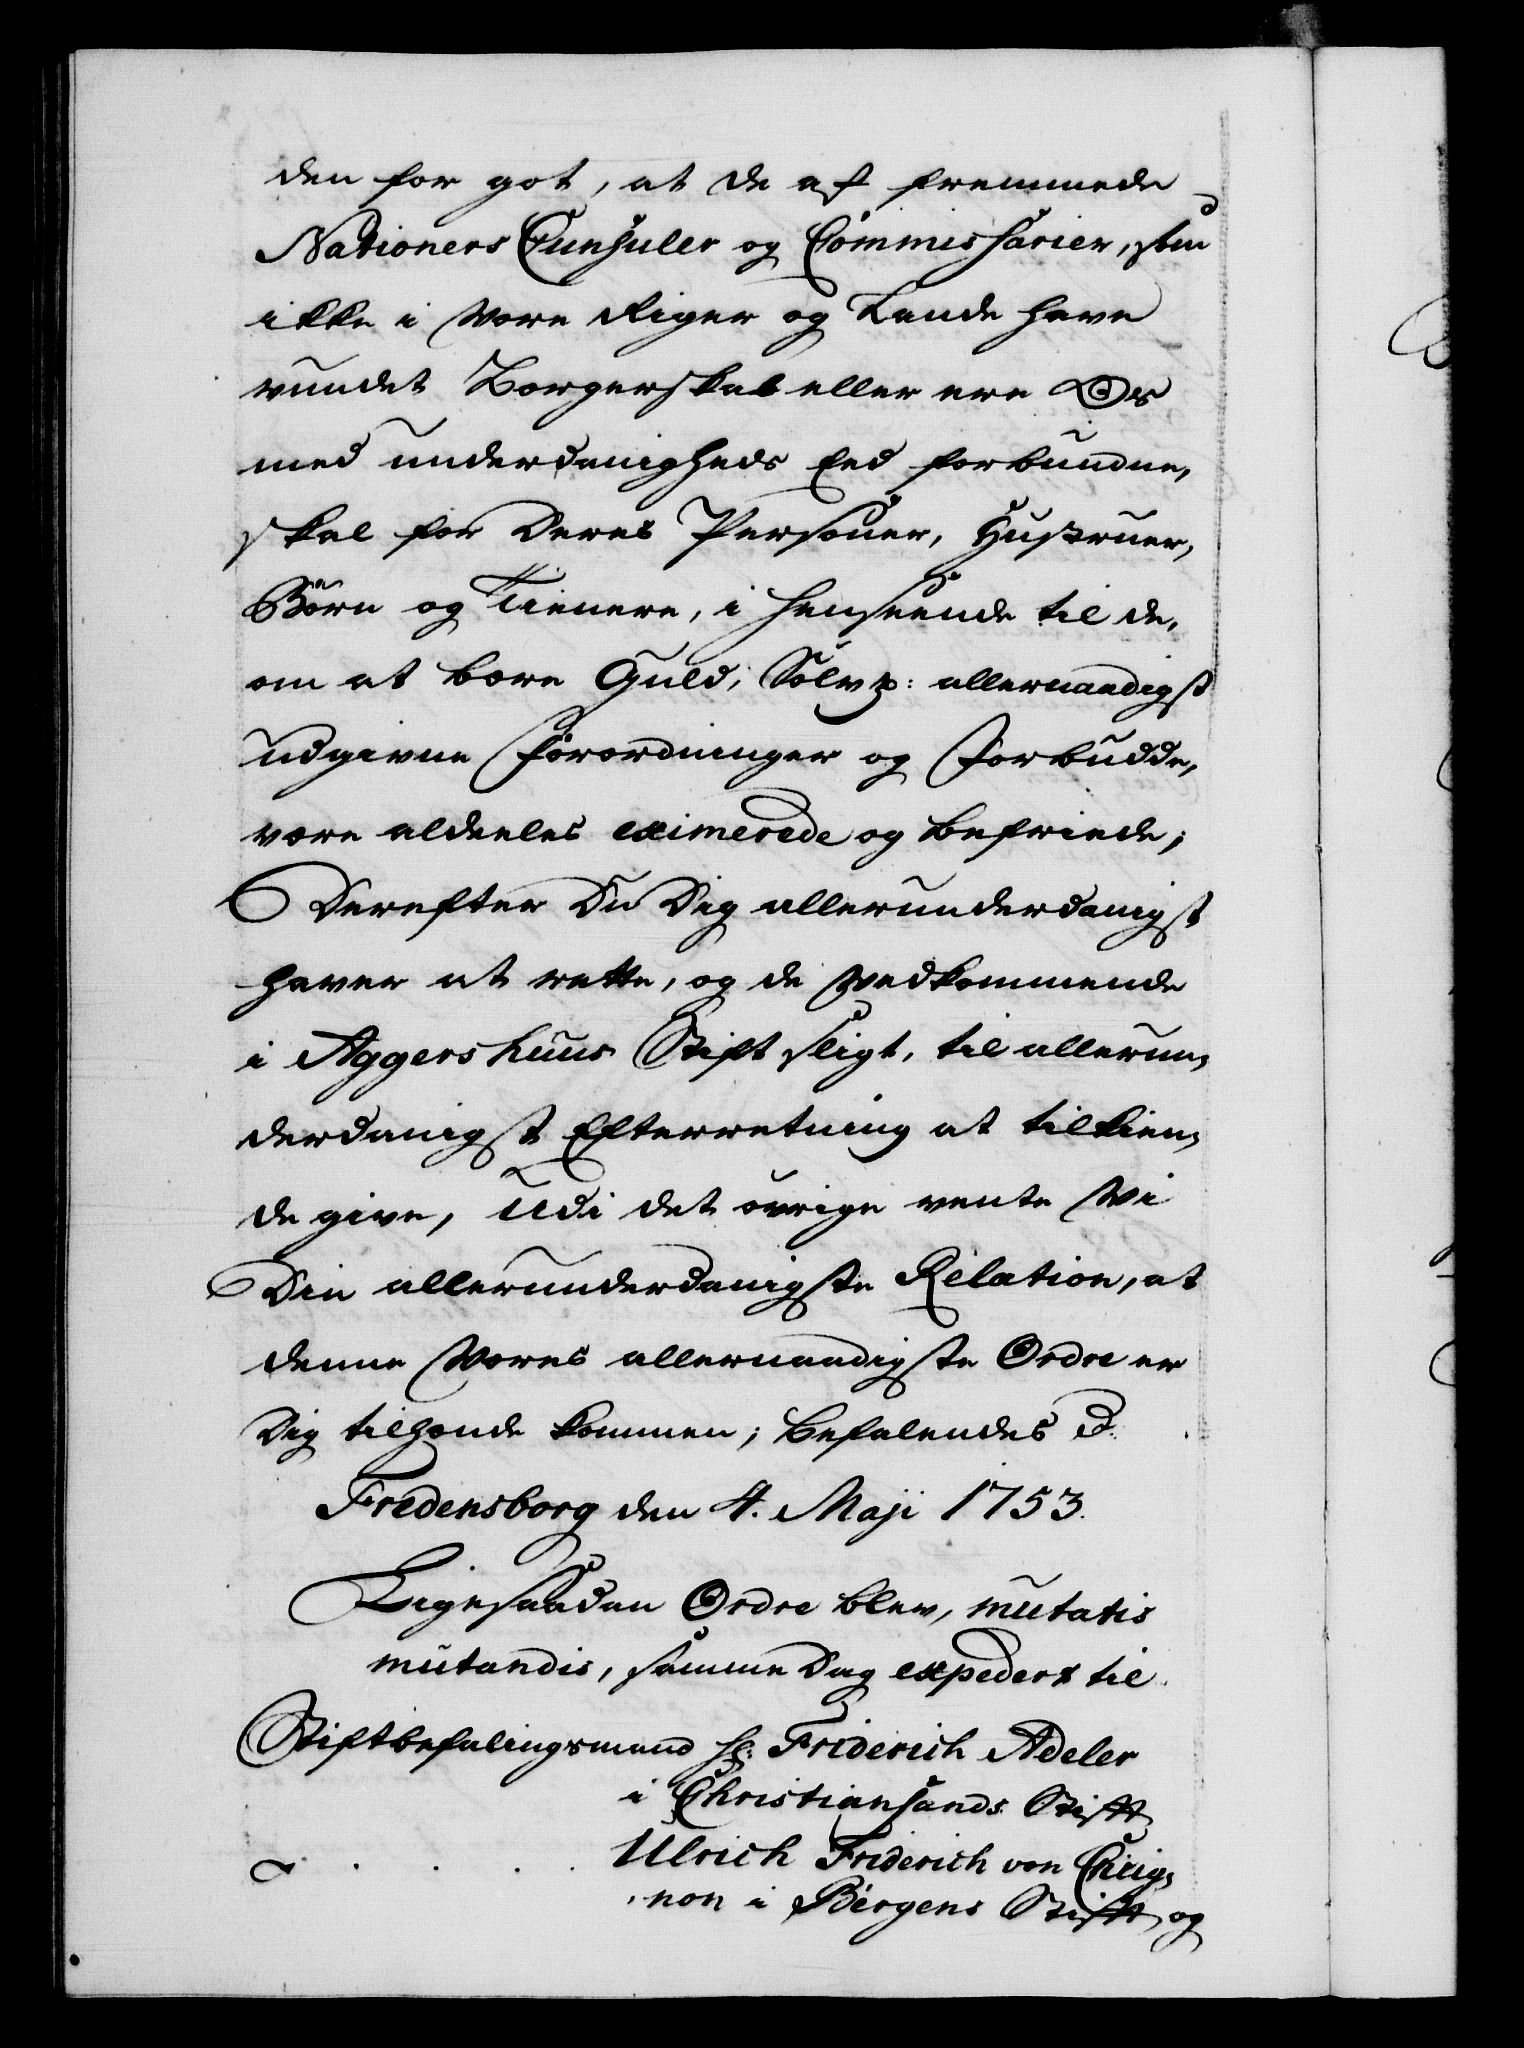 den for got, at de af fremmede
Nationers Consuler og Commissarier, som
ikke i Vore Riger og Lande have
vundet Borgerskab eller ere Os
med underdanigheds Eed forbundne,
skal for Deres Personer, Hustruer,
Börn og Tienere, i henseende til de,
om at bære Guld, Sölv p: allernaadigst
udgivne Forordninger og Forbudde,
være aldeeles eximerede og befriede;
Derefter Du Dig allerunderdanigst
haver at rette, og de Vedkommende
i Aggershuus Stift sligt, til allerun,
derdanigst Efterretning at tilkien,
de give, Udi det övrige vente Vi
Din allerunderdanigste Relation, at
denne Vores allernaadigste Ordre er
Dig tilhænde kommen; Befalendes P.
Fredensborg den 4. Maji 1753.
Ligesaadan Ordre blev, mutatis
mutandis, samme Dag expedert til
Stiftbefalingsmand H: Friderich Adeler
i Christiansands Stift
Ulrich Friderich von Cicig,
non i Bergens Stift, og